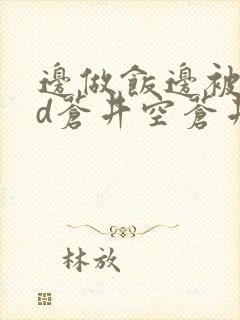 邊做飯邊被
d蒼井空蒼井
林放